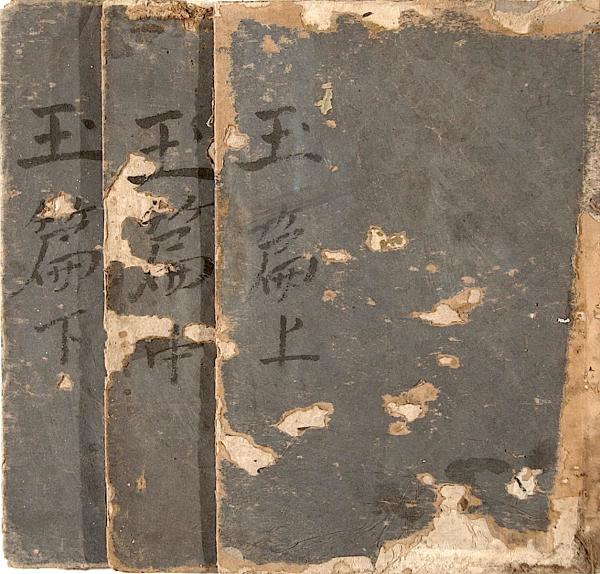 玉篇上
玉篇中
玉篇下